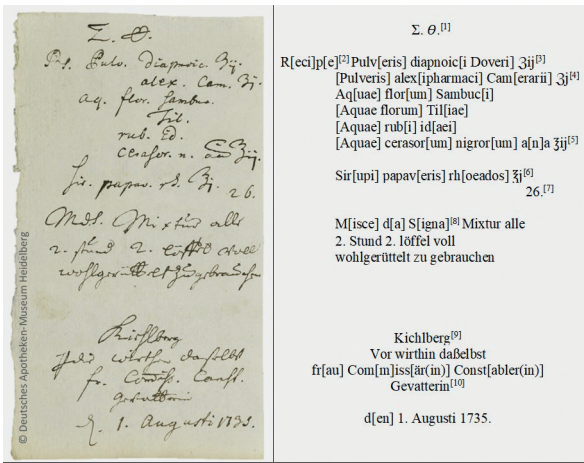 Σ. Θ.
Rp. Pulv. diapnoic. ʒij.
alex. Cam. ʒj.
aq. flor. Sambuc.
Til.
rub. id.
cerasor. n. aa ℥ij.
Sir. papav. rh. ℥j.
26.
MdS. Mixtur alle
2. stund 2. löffel voll
wohlgerüttelt zu gebrauchen
Kichlberg
Vor wirthin daßelbst
fr. Comiss. Const.
Gevatterin
d. 1. Augusti 1735.
© Deutsches Apotheken-Museum Heidelberg
Σ. Θ.[1]
R[eci]p[e][2] Pulv[eris] diapnoic[i Doveri] ʒij[3]
[Pulveris] alex[ipharmaci] Cam[erarii] ʒj[4]
Aq[uae] flor[um] Sambuc[i]
[Aquae florum] Til[iae]
[Aquae] rub[i] id[aei]
[Aquae] cerasor[um] nigror[um] a[n]a ℥ij[5]
Sir[upi] papav[eris] rh[oeados] ℥j[6]
26.[7]
M[isce] d[a] S[igna][8] Mixtur alle
2. Stund 2. löffel voll
wohlgerüttelt zu gebrauchen
Kichlberg[9]
Vor wirthin daßelbst
fr[au] Com[m]iss[är(in)] Const[abler(in)]
Gevatterin[10]
d[en] 1. Augusti 1735.